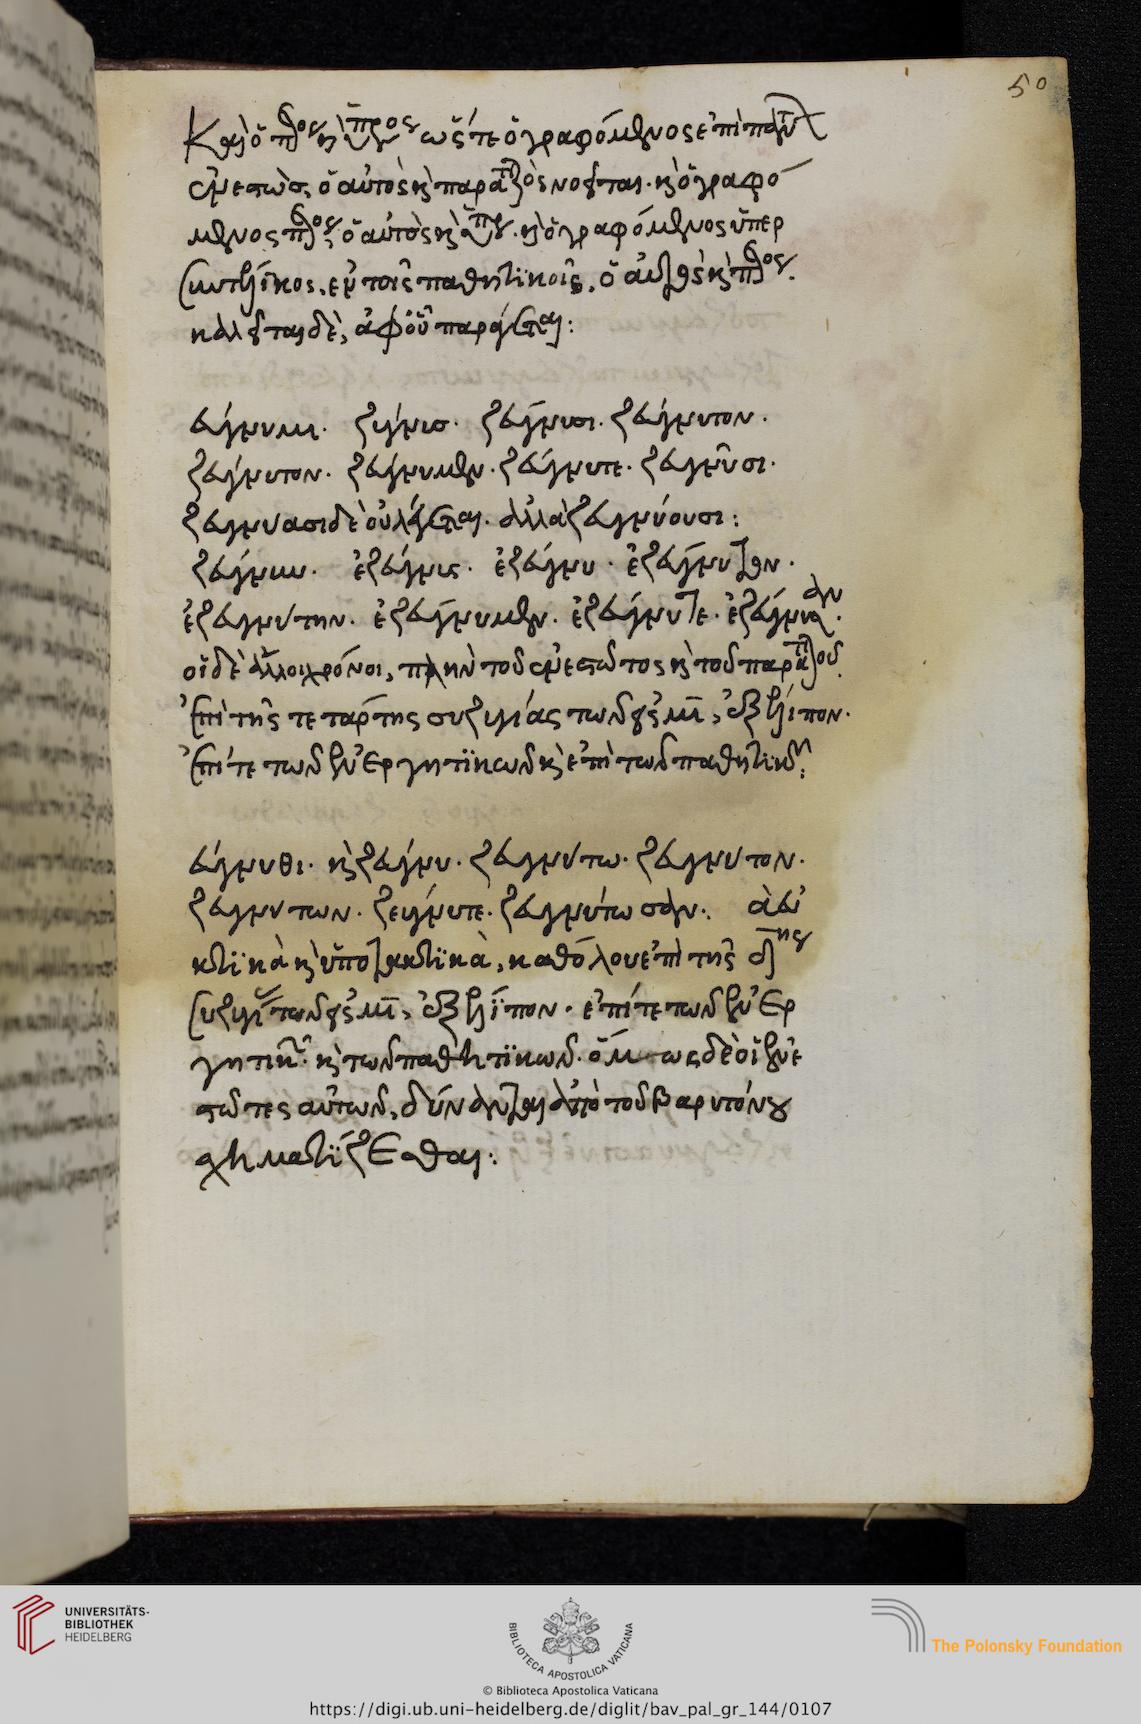 50
Καὶ ὁ ὥστε ὁ γραφόμενος ἐπὶ
ἐνεστὼς ὁ αὐτὸς καὶ νοεῖται. καὶ ὁ γραφό
μενος ὁ αὐτὸς καὶ καὶ ὁ γραφόμενος ὑπερ
συντέλικος, ἐν τοῖς παθητικοῖς, ὁ αὐτός καὶ
καλεῖται δὲ, ἀφ' οὗ παράγεται:
ζεύγνυμι. ζεύγνυς. ζεύγνυσι. ζεύγνυτον.
ζεύγνυτον. ζεύγνυμεν. ζεύγνυτε. ζευγνῦσι.
ζευγνύασι δὲ οὐ λέγεται. ἀλλὰ ζευγνύουσι:
ἐζεύγνυν. ἐζεύγνυς. ἐζεύγνυ. ἐζεύγνυτον.
ἐζευγνύτην. ἐζεύγνυμεν. ἐζεύγνυτε. ἐζεύγνυσαν.
οἱ δὲ ἄλλοι χρόνοι, πλὴν τοῦ ἐνεστῶτος καὶ τοῦ
ἐπὶ τῆς τετάρτης συζυγίας τῶν εἰς μι, ἐξέλιπον.
ἐπί τε τῶν ἐνεργητικῶν καὶ ἐπὶ τῶν παθητικῶν:
ζεύγνυθι. καὶ ζεύγνυ. ζευγνύτω. ζεύγνυτον.
ζευγνύτων. ζεύγνυτε. ζευγνύτωσαν: τὰ εὐ
κτικὰ καὶ ὑποτακτικὰ, καθόλου ἐπὶ τῆς δ ης
συζυγίας τῶν εἰς μι, ἐξέλιπον. ἐπί τε τῶν ἐνερ
γητικῶν. καὶ τῶν παθητικῶν. ὅμως δὲ οἱ ἐνε
στῶτες αὐτῶν, δύνανται ἀπὸ τοῦ βαρυτόνου
σχηματίζεσθαι:
UNIVERSITÄTS-
BIBLIOTHEK
HEIDELBERG
BIBLIOTECA APOSTOLICA VATICANA
The Polonsky Foundation
© Biblioteca Apostolica Vaticana
https://digi.ub.uni-heidelberg.de/diglit/bav_pal_gr_144/0107